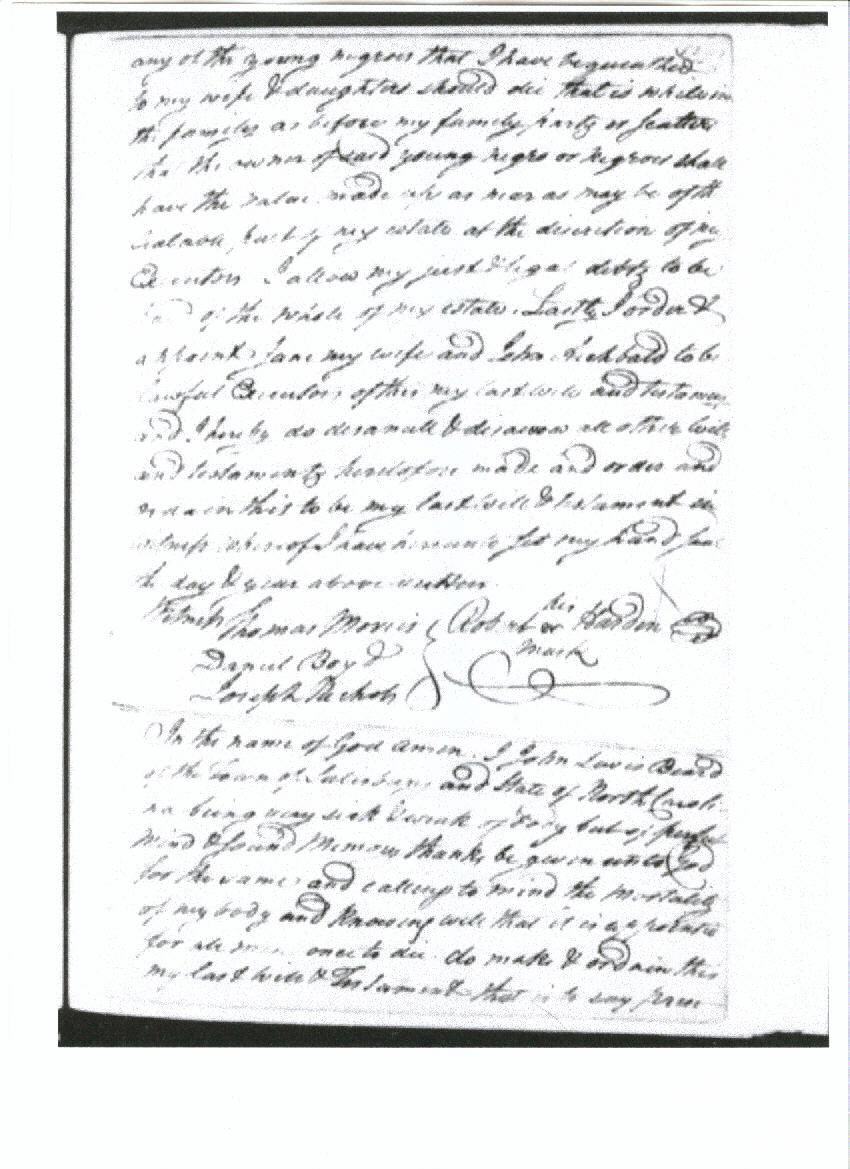 any of the young negroes that I have bequeathed
to my wife & daughters should die that is while in
the families as before my family party or scatter
that the owner of said young negro or negroes shall
have the value made up as near as may be of th
my estate at the discretion of my
Executors I allow my just & legal debts to be
of the whole of my estate. Lastly I order &
appoint Jane my wife and John Archbald to be
lawful Executors of this my last will and testamen
and I hereby do disanull & disavow all other wills
and testaments heretofore made and order and
ordain this to be my last will & testament in
witness whereof I have hereunto set my hand & seal
the day & year above written
Witness Thomas Morris Robert his Harden
Daniel Boyd mark
Joseph Nichols
In the name of God Amen. I John Lewis Beard
of the Town of Salisbury and State of North Caroli
na being very sick & weak of body but of perfect
mind & sound Memory thanks be given unto God
for the same and calling to mind the mortality
of my body and knowing well that it is appointed
for all men once to die do make & ordain this
my last will & Testament that is to say